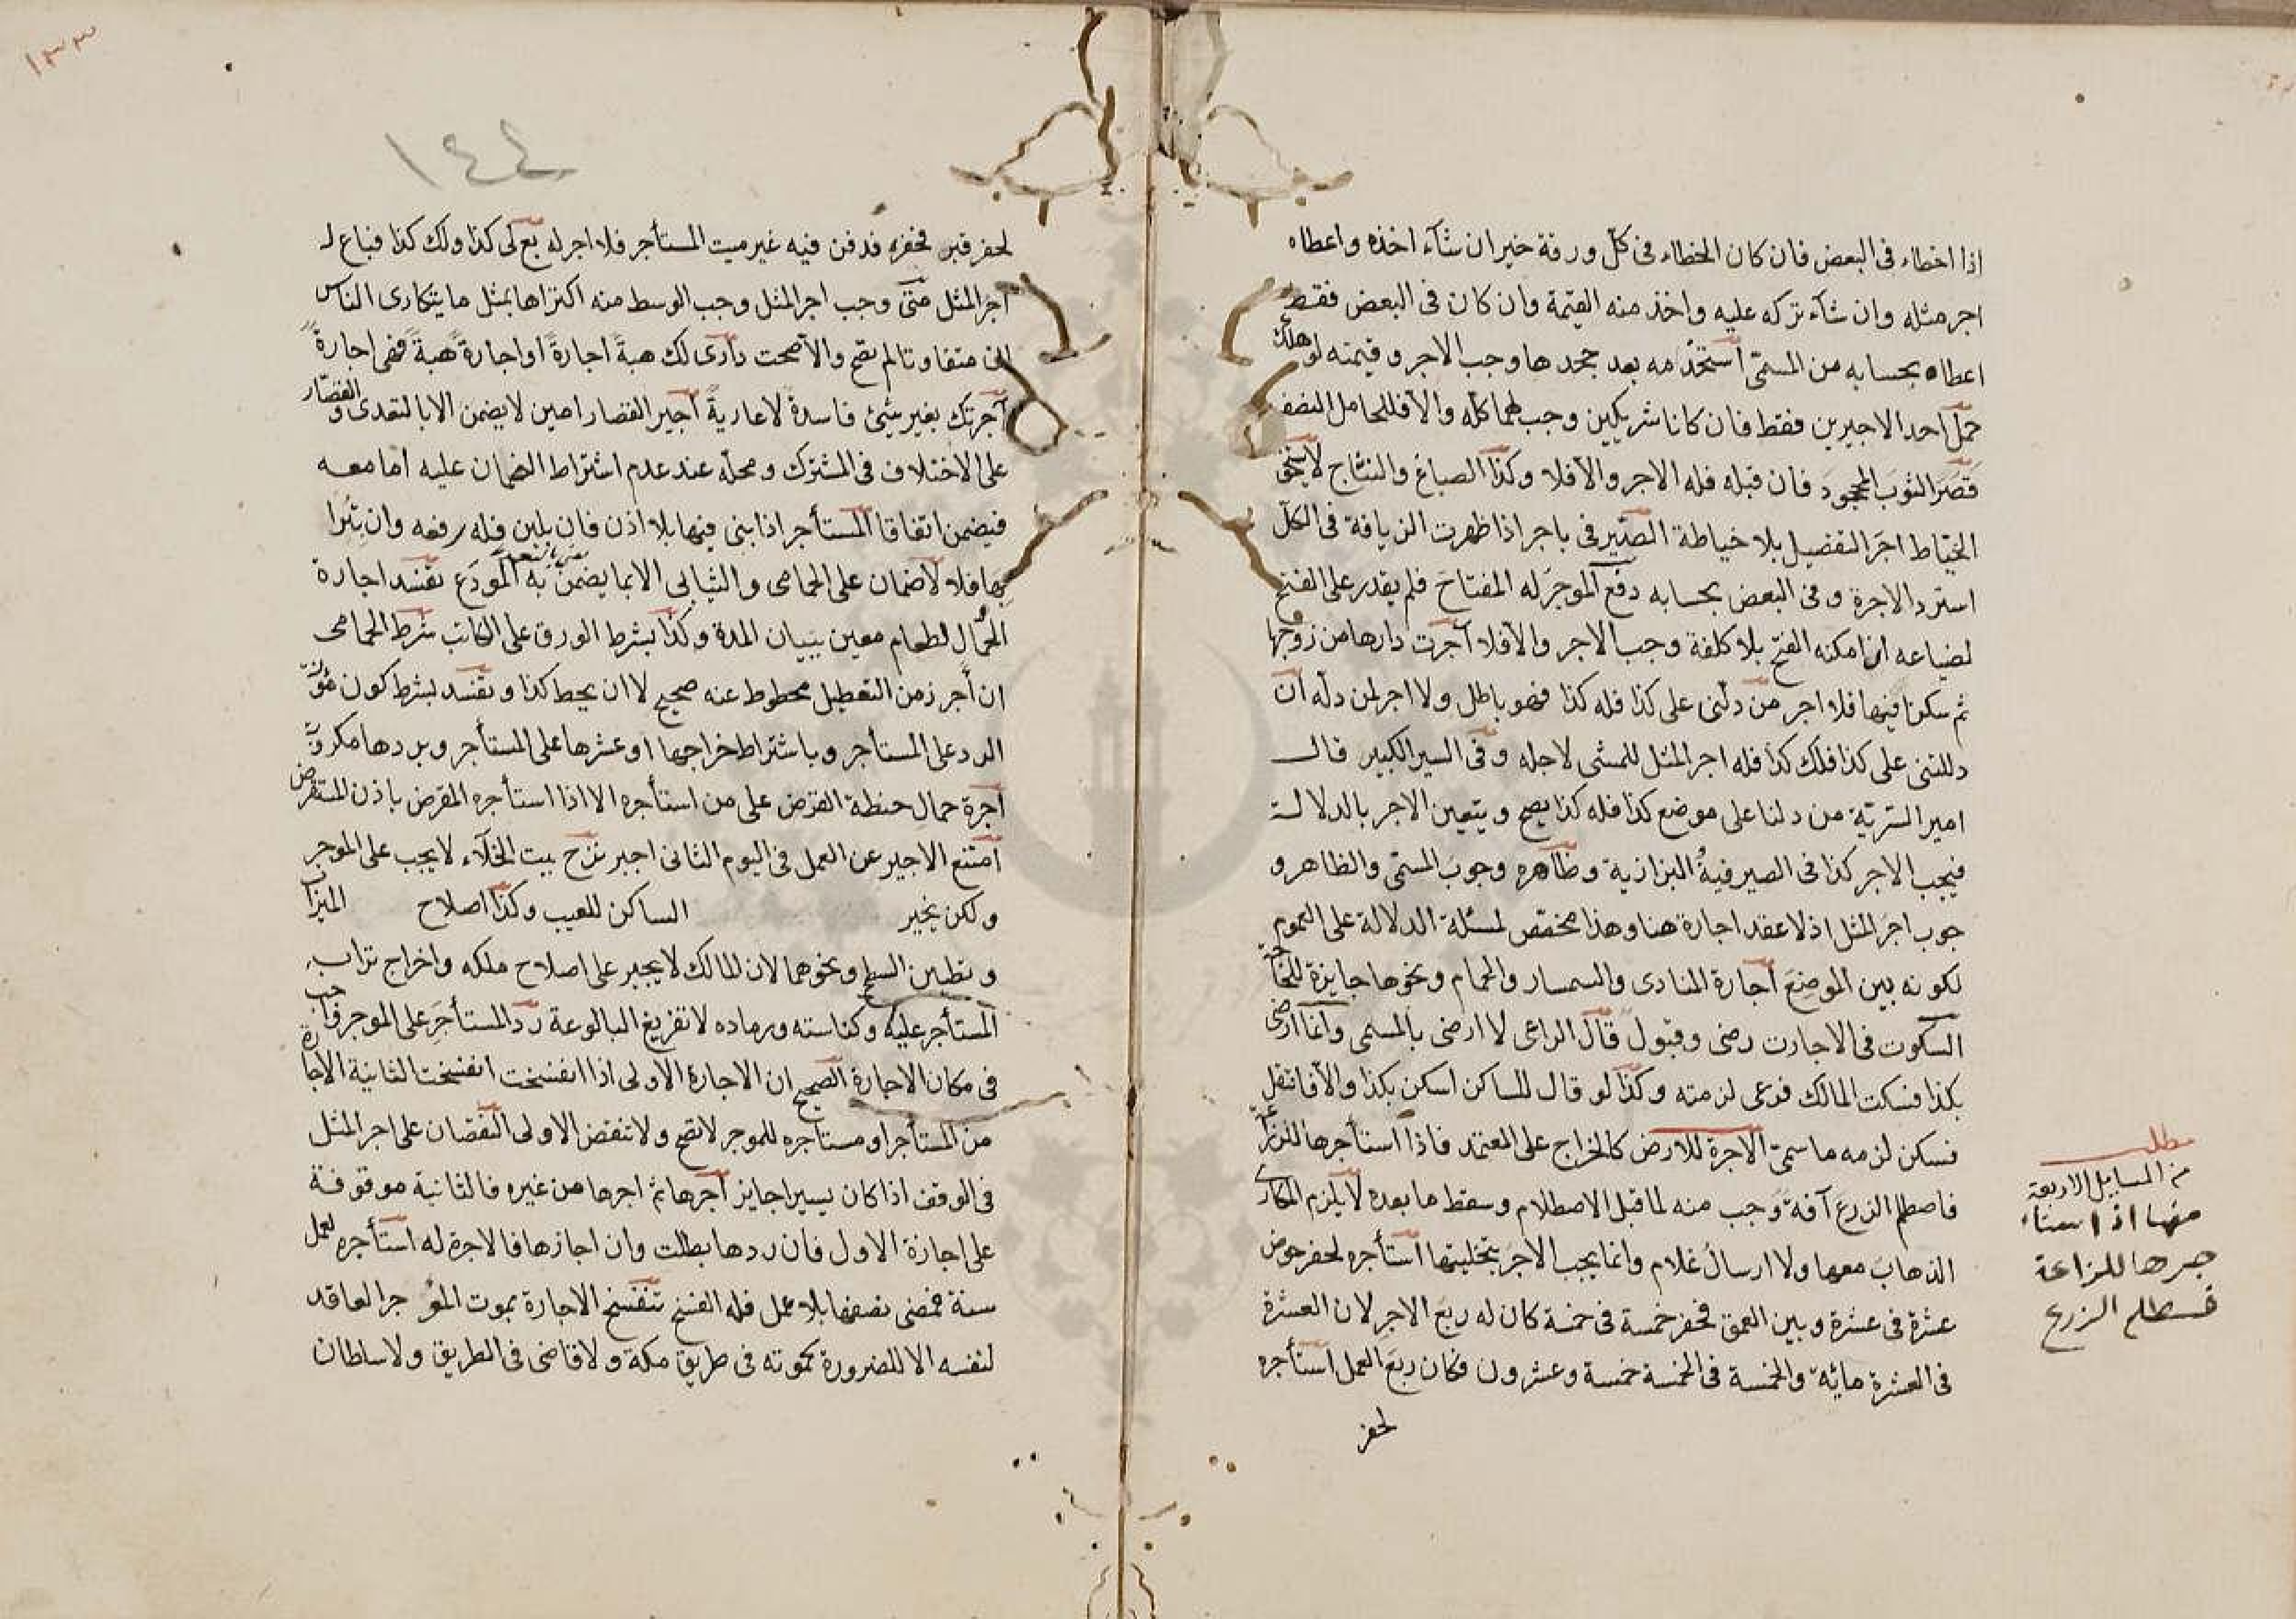 اذا اخطاء فى البعض فان كان الخطاء فى كل ورقة خير ان شآء اخذه واعطاه
اجر مثله وان شآء تركه عليه واخذ منه القيمة وان كان فى البعض فقط
اعطاه بحسابه من المسمّى استخدمه بعد جحدها وجب الاجر وقيمته لو هلك
حمل احد الاجيرين فقط فان كانا شريكين وجب لهما كلّه والّا فللحامل النصف
قصَرَ الثوبَ المجحودَ فان قبله فله الاجر والّا فلا وكذا الصباغ والنسّاج لا يستحق
الخيّاط اجرَ التفصيل بلا خياطة الصيرفى باجر اذا ظهرت الزيافة فى الكلّ
استرد الاجرة وفى البعض بحسابه دفع الموجر له المفتاح فلم يقدر على الفتح
لضياعه ان امكنه الفتح بلا كلفة وجب الاجر والّا فلا آجرت دارها من زوجها
ثم سكنا فيها فلا اجر من دلّنى على كذا فله كذا فهو باطل ولا اجر لمن دلّه ان
دللتنى على كذا فلك كذا فله اجر المثل للمشى لاجله وفى السير الكبير قال
امير السّريّة من دلنا على موضع كذا فله كذا يصح ويتعين الاجر بالدلالة
فيجب الاجر كذا فى الصيرفية البزازية وظاهره وجوبَ المسمّى والظاهر و
جوب اجر المثل اذ لا عقد اجارة هنا وهذا مخصّص لمسئلة الدلالة على العموم
لكونه بين الموضعَ اجارة المنادى والسمسار والحمام ونحوها جايزة للحاجة
السكوت فى الاجارت رضى وقبول قال الراعى لا ارضى بالمسمى وانما ارضى
بكذا فسكت المالك فرعى لزمته وكذا لو قال للساكن اسكن بكذا والّا فانتقل
فسكن لزمه ما سمىّ الاجرة للارض كالخراج على المعتمد فاذا استأجرها للزراعة
فاصطلم الزرع آفة وجب منه لما قبل الاصطلام وسقط ما بعده لا يلزم المكارى
الذهاب معها ولا ارسالُ غلام وانما يجب الاجرُ بتخليتها استأجره لحفر حوض
عشرة فى عشرة وبين العمق فحفر خمسة فى خمسة كان له ربعَ الاجر لان العشرة
فى العشرة مائة والخمسة فى الخمسة خمسة وعشرون فكان ربعَ العمل استأجره
لحفر
مطلب
من المسايل الاربعة
منها اذا استا
جرها للزراعة
فسطلم الزرع
١٣٣
١٤٤
لحفر قبر فحفره فدفن فيه غير ميت المستأجر فلا اجر له بع لى كذا ولك كذا فباع له
اجر المثل متى وجب اجر المثل وجب الوسط منه اكتراها بمثل ما يتكارى الناس
ان متفاوتا لم تصح والّا صحت دارى لك هبةً اجارةً او اجارةً هبةً فهى اجارةً
آجرتك بغير شيئ فاسدة لا عاريةً اجير القصار امين لا يضمن الا بالتعدى والقصّار
على الاختلاف فى المشترك ومحلّه عند عدم اشتراط الضمان عليه اما معه
فيضمن اتفاقا المستأجر اذا بنى فيها بلا اذن فان بلبن فله رفعه وان بترا
بها فلا لا ضمان على الحمامى والثيابى الا بما يضمن به المودَع تفسد اجارة
الحمّال لطعام معين ببيان المدة وكذا بشرط الورق على الكاتب شرط الحمامى
ان أجر زمن التعطيل محطوط عنه صحيح لا ان يحط كذا وتفسد بشرط كون مؤنة
الرد على المستأجر وباشتراط خراجها او عشرها على المستأجر وبردها مكروبة
اجرة حمال حنطة القرض على من استأجره الا اذا استأجره المقرض باذن المستقرض
امتنع الاجير عن العمل فى اليوم الثانى اجبر نزح بيت الخلآء لا يجب على الموجر
ولكن يخير الساكن للعيب وكذا اصلاح الميزاب
وتطيين السطح ونحوهما لان المالك لا يجبر على اصلاح ملكه واخراج تراب
المستأجر عليه وكناسته ورماده لا تفريغ البالوعة ردّ المستأجَر على الموجر واجب
فى مكان الاجارة الصحيح ان الاجارة الاولى اذا انفسخت انفسخت الثانية الاجارة
من المستأجر او مستاجره للموجر لا تصح ولا تنقض الاولى النقصان على اجر المثل
فى الوقف اذا كان يسيرا جايز آجرها ثم اجرها من غيره فالثانية موقوفة
على اجازة الاول فان ردها بطلت وان اجازها فالاجرة له استأجره لعمل
سنة فمضى نصفها بلا عمل فله الفسخ تنفسخ الاجارة بموت المؤجر العاقد
لنفسه الا للضرورة كموته فى طريق مكة ولا قاضى فى الطريق ولا سلطان